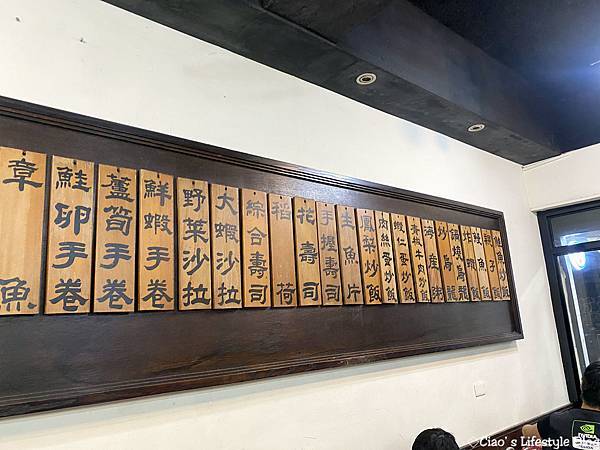 章魚
鮭卵手卷
蘆筍手卷
鮮蝦手卷
野菜沙拉
大蝦沙拉
綜合壽司
稻荷
花壽司
手握壽司
生魚片
鳳梨炒飯
肉絲蛋炒飯
蝦仁蛋炒飯
青椒牛肉炒飯
海產粥
炒烏龍
鍋燒烏龍
炸蝦飯
鰻魚飯
親子飯
鮭魚飯
©Ciao's Lifestyle Blog